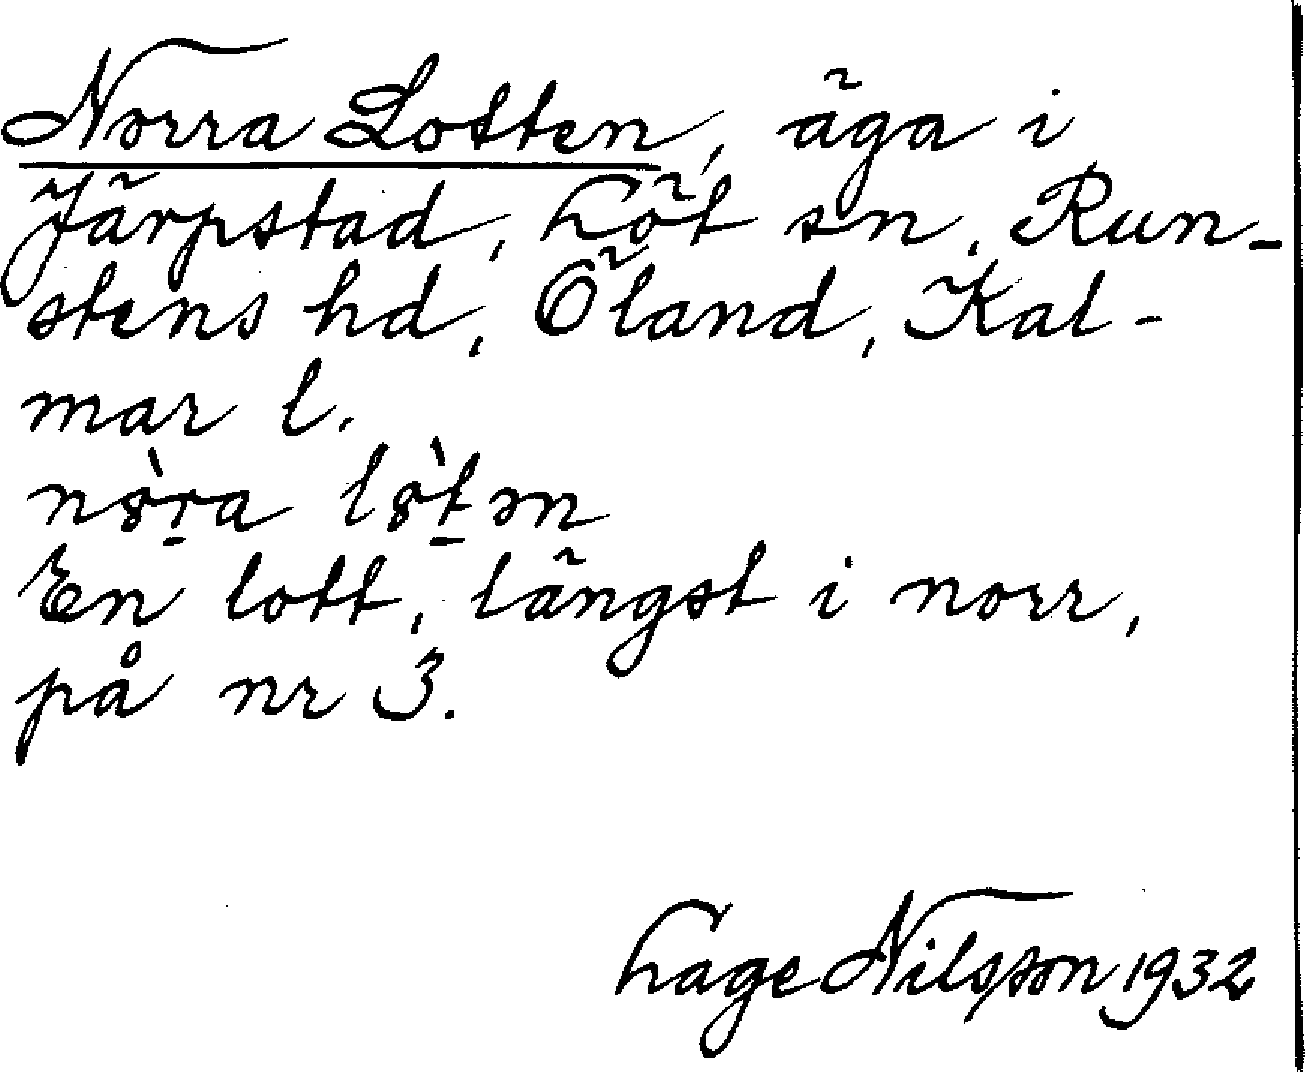 Norra Lotten, äga i
Järpstad, Löt sn, Run-
stens hd, Öland, Kal-
mar l.
nòra lòtən
En lott, längst i norr,
på nr 3.
Lage Nilsson 1932